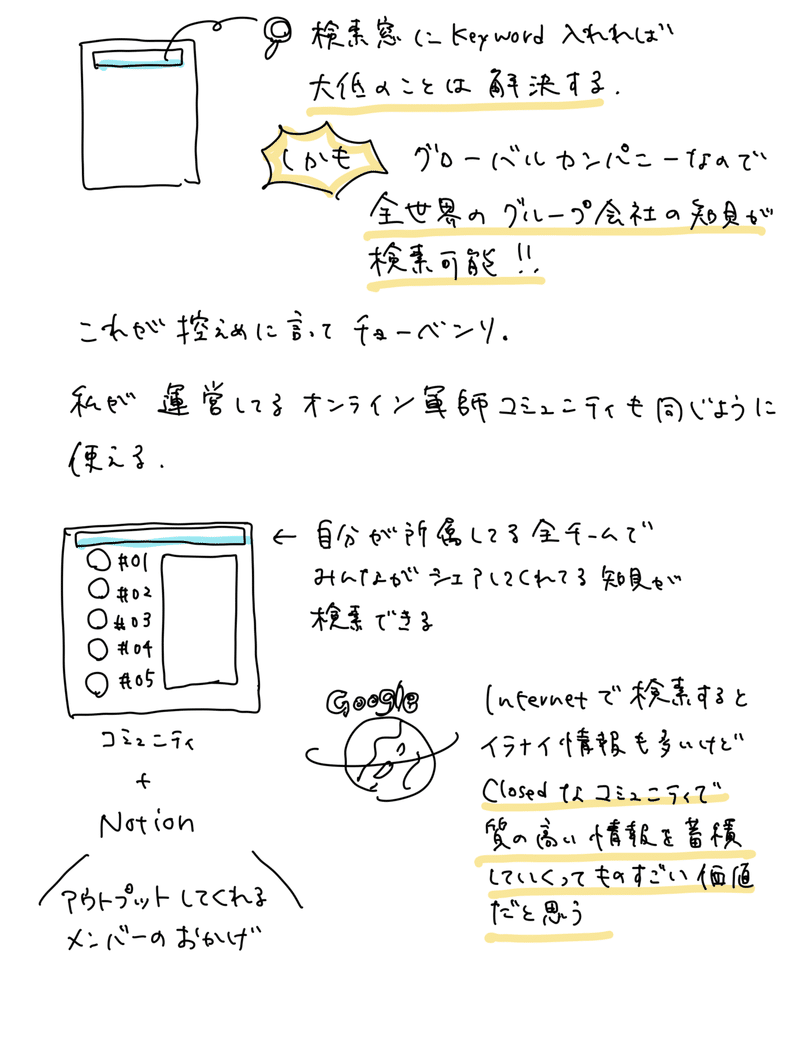 検索窓にKeyword入れれば
大低のことは解決する.
しかも
グローバルカンパニーなので
全世界のグループ会社の知見が
検索可能!!
これが控えめに言ってチョーベンリ.
私が運営してるオンライン軍師コミュニティも同じように
使える.
#01
#02
#03
#04
#05
← 自分が所属してる全チームで
みんながシェアしてくれてる知見が
検索できる
コミュニティ
+
Notion
アウトプットしてくれる
メンバーのおかげ
Google
Internetで検索すると
イラナイ情報も多いけど
Closedなコミュニティで
質の高い情報を蓄積
していくってものすごい価値
だと思う